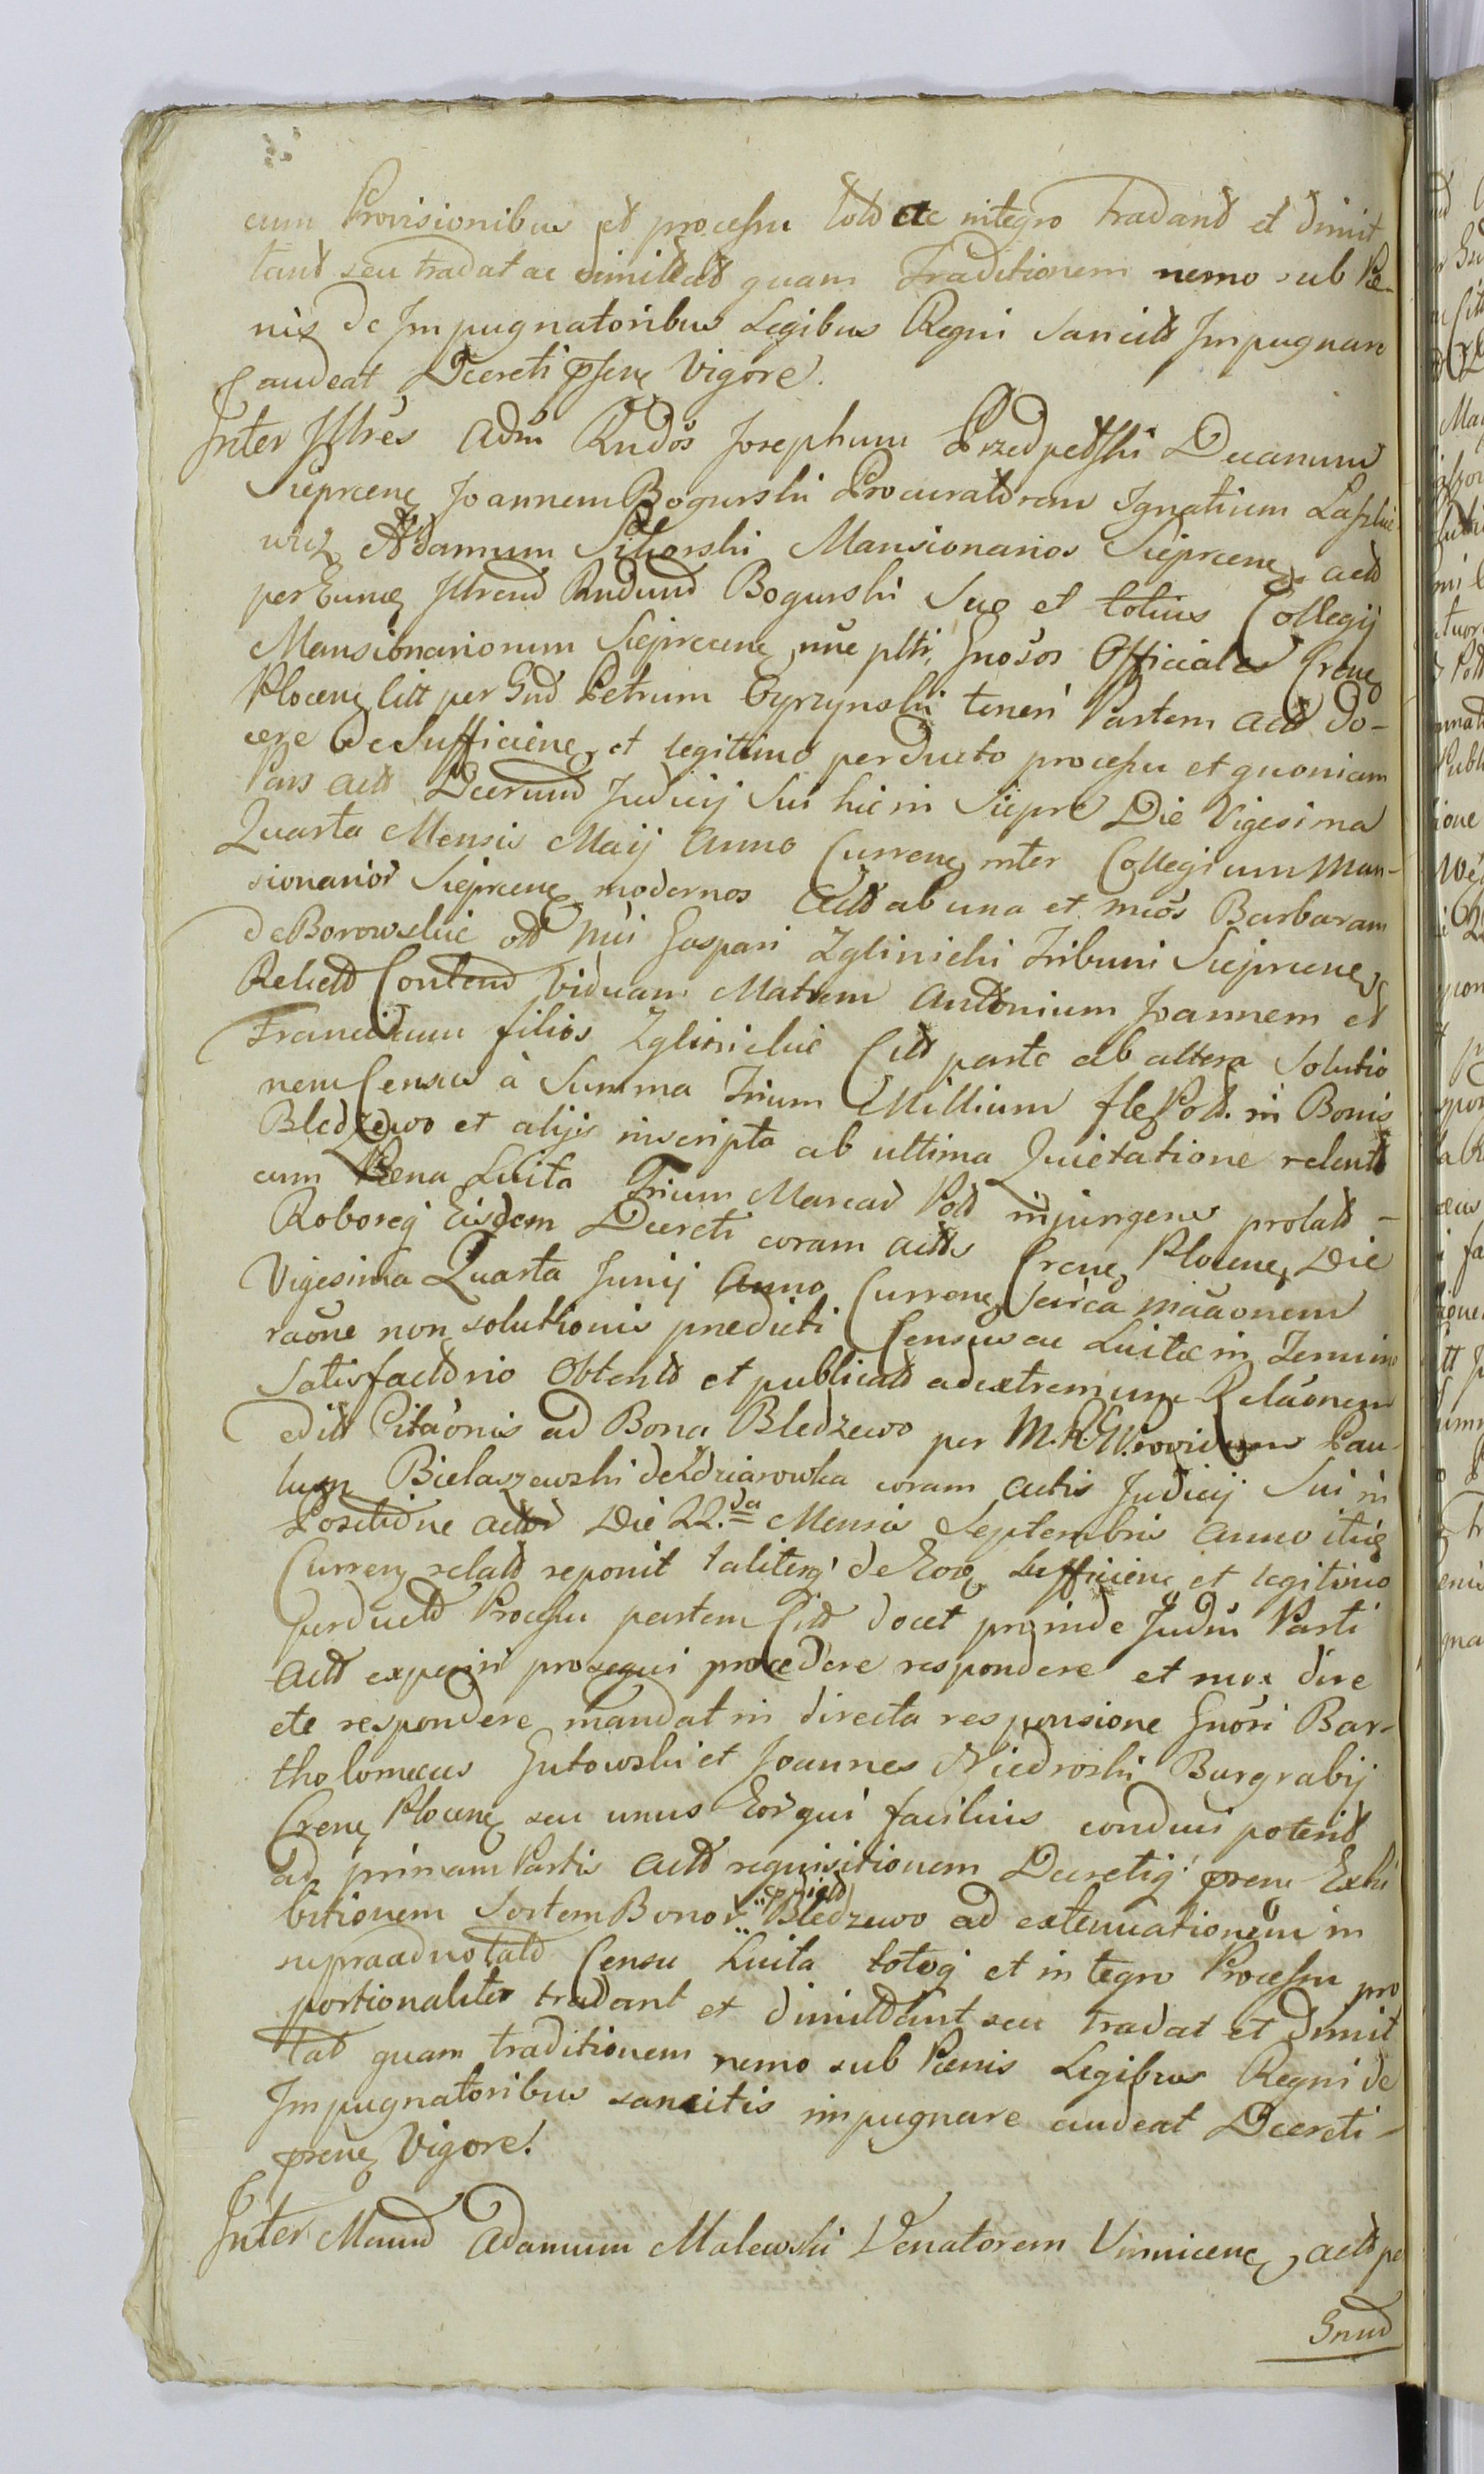 cum Provisionibus et processu totto etc integro tradant et dimit
tant seu tradat ac dimittat quam Traditionem nemo sub Pæ-
nis de Impugnatoribus Legibus Regni Sancitt Impugnare
audeat Decreti præsenę Vigore.
Inter Illres Adm Rndos Josephum Przedpełski Decanum
Sieprcenę Joannem Bogurski Procuratorem Ignatium Laszkie
wicz Adamum Sikorski Mansionarios Sieprcenę actt
per Eumę Illrend Rndum Bogurski Suo et totius Collegij
Mansionariorum Sieprcenę nne pltr, Gnosos Officiales Crenę
Plocenę Citt per Gnd Petrum Cyrzynski teneri Partem actt Do-
cere de Sufficienę et legitimo perducto processu et quoniam
Pars actt Decrettum Judicij Sui hic in Siepre Die Vigesima
Quarta Mensis Maij Anno Currenę inter Collegium Man-
sionarior Sieprcenę modernos Actt ab una et Mcos Barbaram
de Borowskie ott Mci Gaspari Zglinicki Tribuni Sieprcenę
Relictt Contend Viduam Matrem Antonium Joannem et
Franciscum filios Zglinickie Citt parte ab altera Solutio
nem Census à Summa Trium Millium fle Poll. in Bonis
Bledzewo et alijs inscripta ab ultima Quietatione retentt
cum Pæna Luita Trium Marcar Poll injungens prolatt -
Roboreq Eisdem Decreti coram actis Crenę Plocenę Die
Vigesima Quarta Junij Anno Currenę
raône non solutionis predicti Census ac Luitæ in Termino
Satisfactorio Obtentt et publicatt ad extremum Relaonem
editt Citaonis ad Bona Bledzewo per M. R. G. Providum Pau-
lum Bielaszewski de Zdziarowka coram actis Judicij Sui in
Positione actor Die 22.da Mensis Septembris Anno itię
Currenę relatt reponit taliterq de Eoę Sufficienę et legitimo
perductt Processu partem Citt docet proinde Judm Parti
actt experiri prosequi procedere respondere et mox dire
cte respondere mandat in directa responsione Gnosi Bar-
tholomæus Gutowski et Joannes Niedroski Burgrabij
Crenę Plocenę seu unus Eor qui facilius conduci poterit
ad primam Partis actt requisitionem Decretiq præsenę Exhi
bitionem Sortem Bonor prdictt Bledzewo ad extenuationem in
supraadnotatt Censu Luita totoq et integro Processu pro
portionaliter tradant et dimittant seu tradat et dimit
tat quam traditionem nemo sub Pænis Legibus Regni de
Impugnatoribus sancitis impugnare audeat Decreti -
prænę Vigore!
Inter Mcum Adamum Malewski Venatorem Vinnicenę actt pe
Gnud